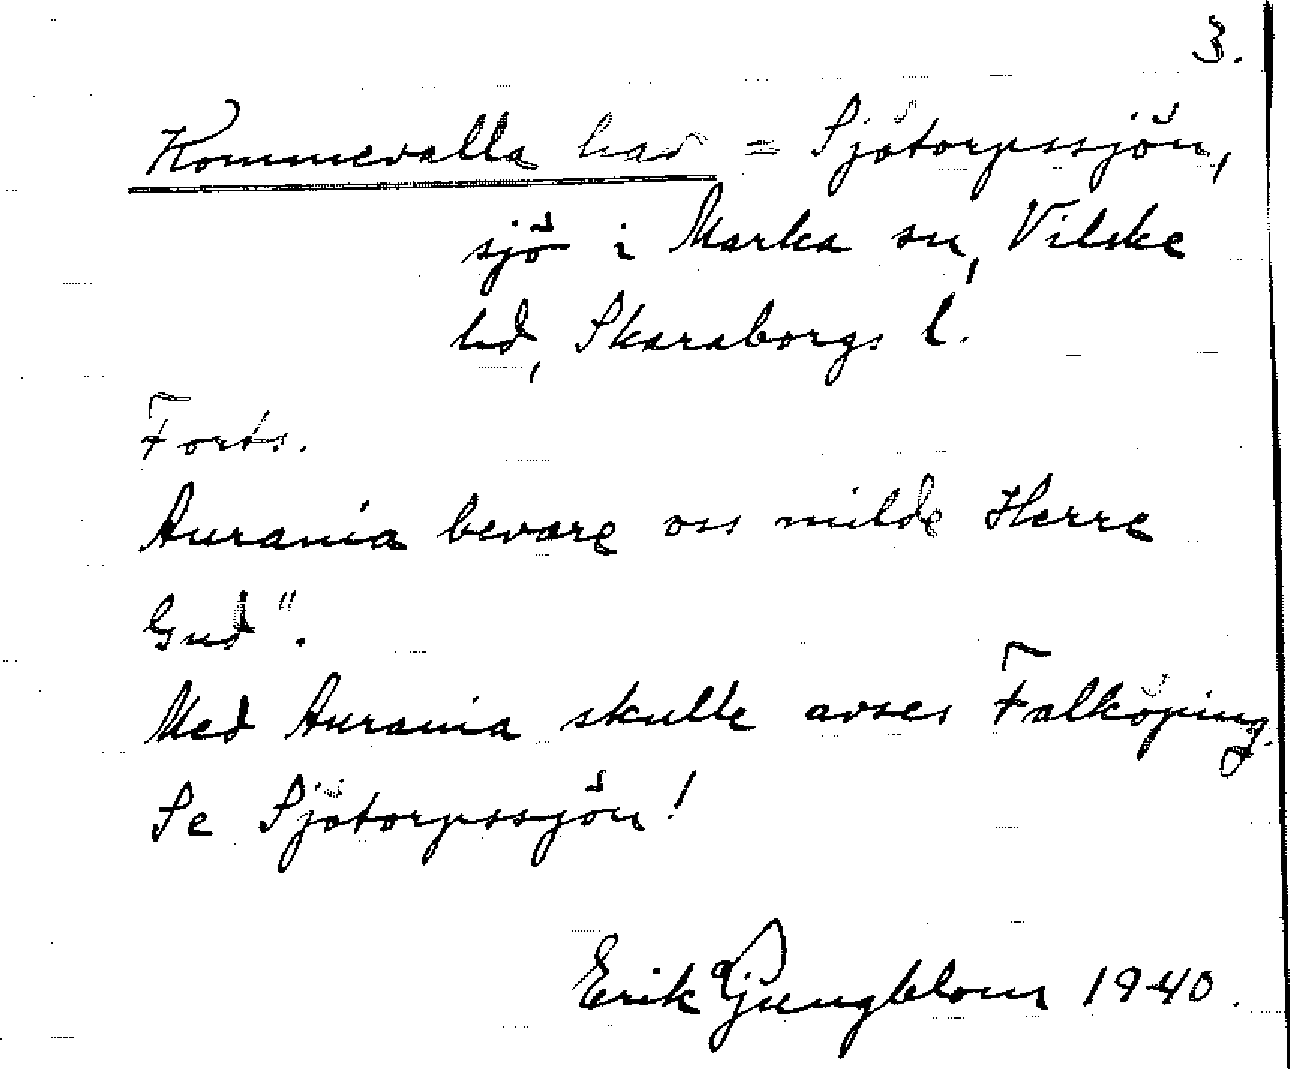 3.
Kommevalla hav = Sjötorpssjön,
sjö i Marka sn, Vilske
hd, Skaraborgs l.
Forts.
Aurania bevare oss milde Herre
Gud".
Med Aurania skulle avses Falköping.
Se Sjötorpssjön!
Erik Ljungblom 1940.